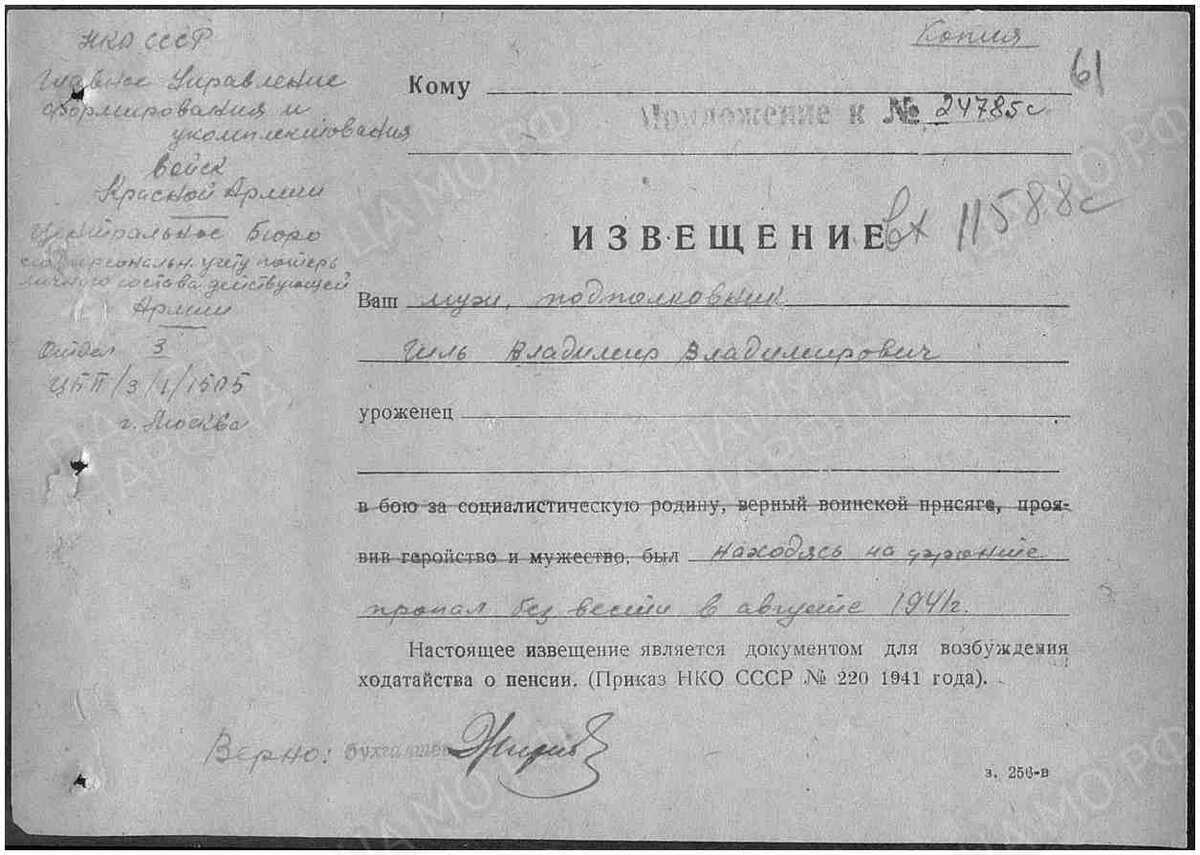 Копия
61
НКО СССР
Главное Управление
формирования и
укомплектования
войск
Красной Армии
Центральное бюро
персональн. учету потерь
личного состава действующей
Армии
Отдел 3
г. Москва
Кому
Приложение к № 24785с
ИЗВЕЩЕНИЕ
вх 11588с
Ваш муж, подполковник
Гиль Владимир Владимирович
уроженец
в бою за социалистическую родину, верный воинской присяге, проя-
вив геройство и мужество, был находясь на фронте
пропал без вести в августе 1941г.
Настоящее извещение является документом для возбуждения
ходатайства о пенсии. (Приказ НКО СССР № 220 1941 года).
Верно:
з. 256-в